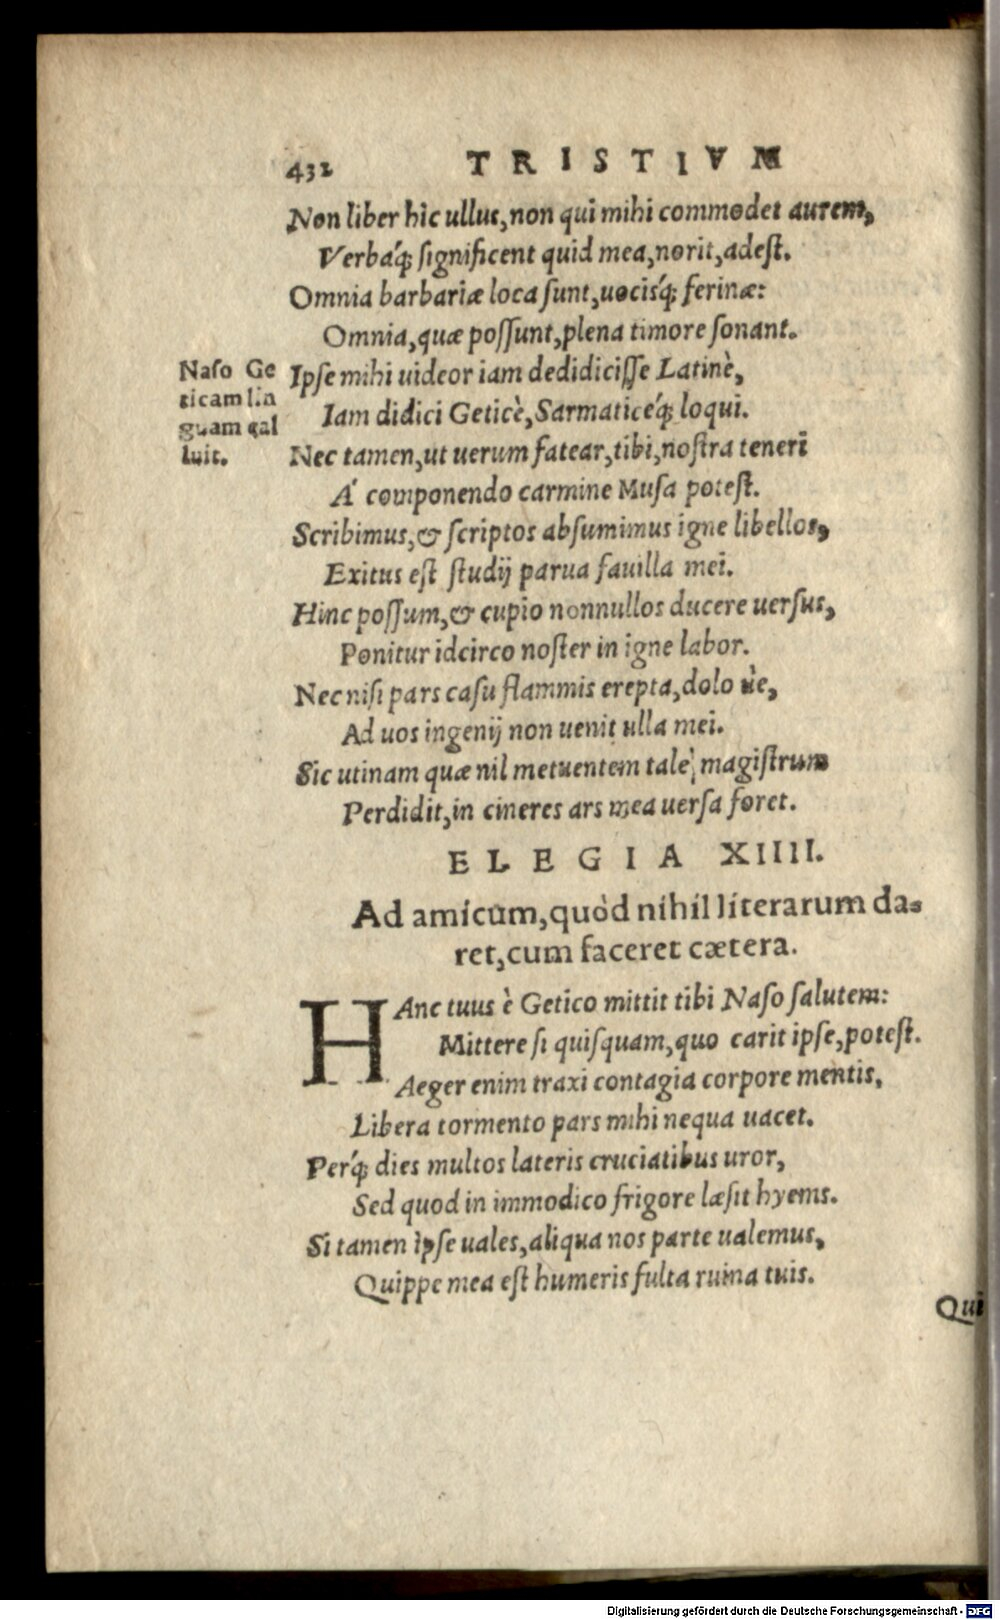 432 TRISTIVM
Non liber hic ullus, non qui mihi commodet aurem,
Verbaq́; significent quid mea, norit, adest.
Omnia barbariæ loca sunt, uocisq́; ferinæ:
Omnia, quæ possunt, plena timore sonant.
Naso Ge
ticam lin
guam cal
luit.
Ipse mihi uideor iam dedidicisse Latinè,
Iam didici Geticè, Sarmaticeq́; loqui.
Nec tamen, ut uerum fatear, tibi, nostra teneri
A' componendo carmine Musa potest.
Scribimus, & scriptos absumimus igne libellos,
Exitus est studij parua fauilla mei.
Hinc possum, & cupio nonnullos ducere uersus,
Ponitur idcirco noster in igne labor.
Nec nisi pars casu flammis erepta, dolo ùe,
Ad uos ingenij non uenit ulla mei.
Sic utinam quæ nil metuentem tale, magistrum
Perdidit, in cineres ars mea uersa foret.
ELEGIA XIIII.
Ad amicum, quòd nihil literarum da-
ret, cum faceret cætera.
HAnc tuus è Getico mittit tibi Naso salutem:
Mittere si quisquam, quo carit ipse, potest.
Aeger enim traxi contagia corpore mentis,
Libera tormento pars mihi nequa uacet.
Perq́; dies multos lateris cruciatibus uror,
Sed quod in immodico frigore læsit hyems.
Si tamen ipse uales, aliqua nos parte ualemus,
Quippe mea est humeris fulta ruina tuis.
Qui
Digitalisierung gefördert durch die Deutsche Forschungsgemeinschaft - DFG